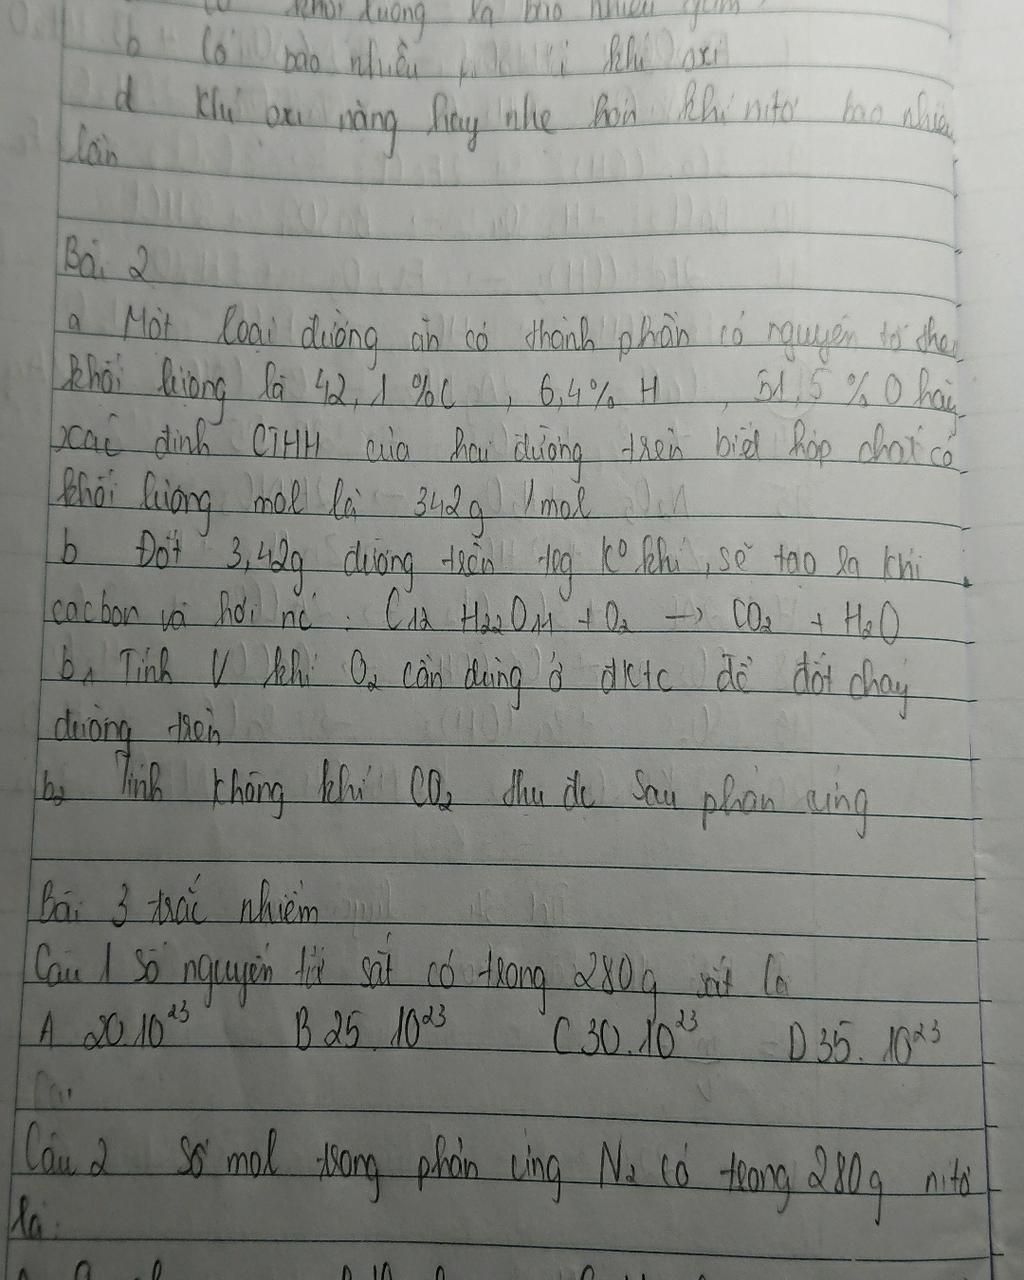 khối lượng là bao nhiêu gam
b Có bao nhiêu khí oxi
d Khí oxi nặng hay nhẹ hơn khí nitơ bao nhiêu
lần
Bài 2
a Một loại đường ăn có thành phần có nguyên tố theo
khối lượng là 42,1 %C , 6,4% H , 51,5 % O hãy
xác định CTHH của hai đường trên biết hợp chất có
khối lượng mol là 342g /mol
b Đốt 3,42g đường trên tng K° khí, sẽ tạo ra khí
cacbon và hơi nc : C12 H22O11 + O2 → CO2 + H2O
b1 Tính V khí O2 cần dùng ở đktc để đốt cháy
đường trên
b2 Tính không khí CO2 thu đc sau phản ứng
Bài 3 trắc nhiệm
Câu 1 Số nguyên tử sắt có trong 280g sắt là
A 20.10²³ B 25.10²³ C 30.10²³ D 35.10²³
Câu 2 Số mol trong phản ứng N2 có trong 280g nitơ
là: